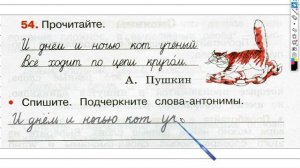 54. Прочитайте.
И днём и ночью кот учёный
Всё ходит по цепи кругом.
А. Пушкин
• Спишите. Подчеркните слова-антонимы.
И днём и ночью кот уч